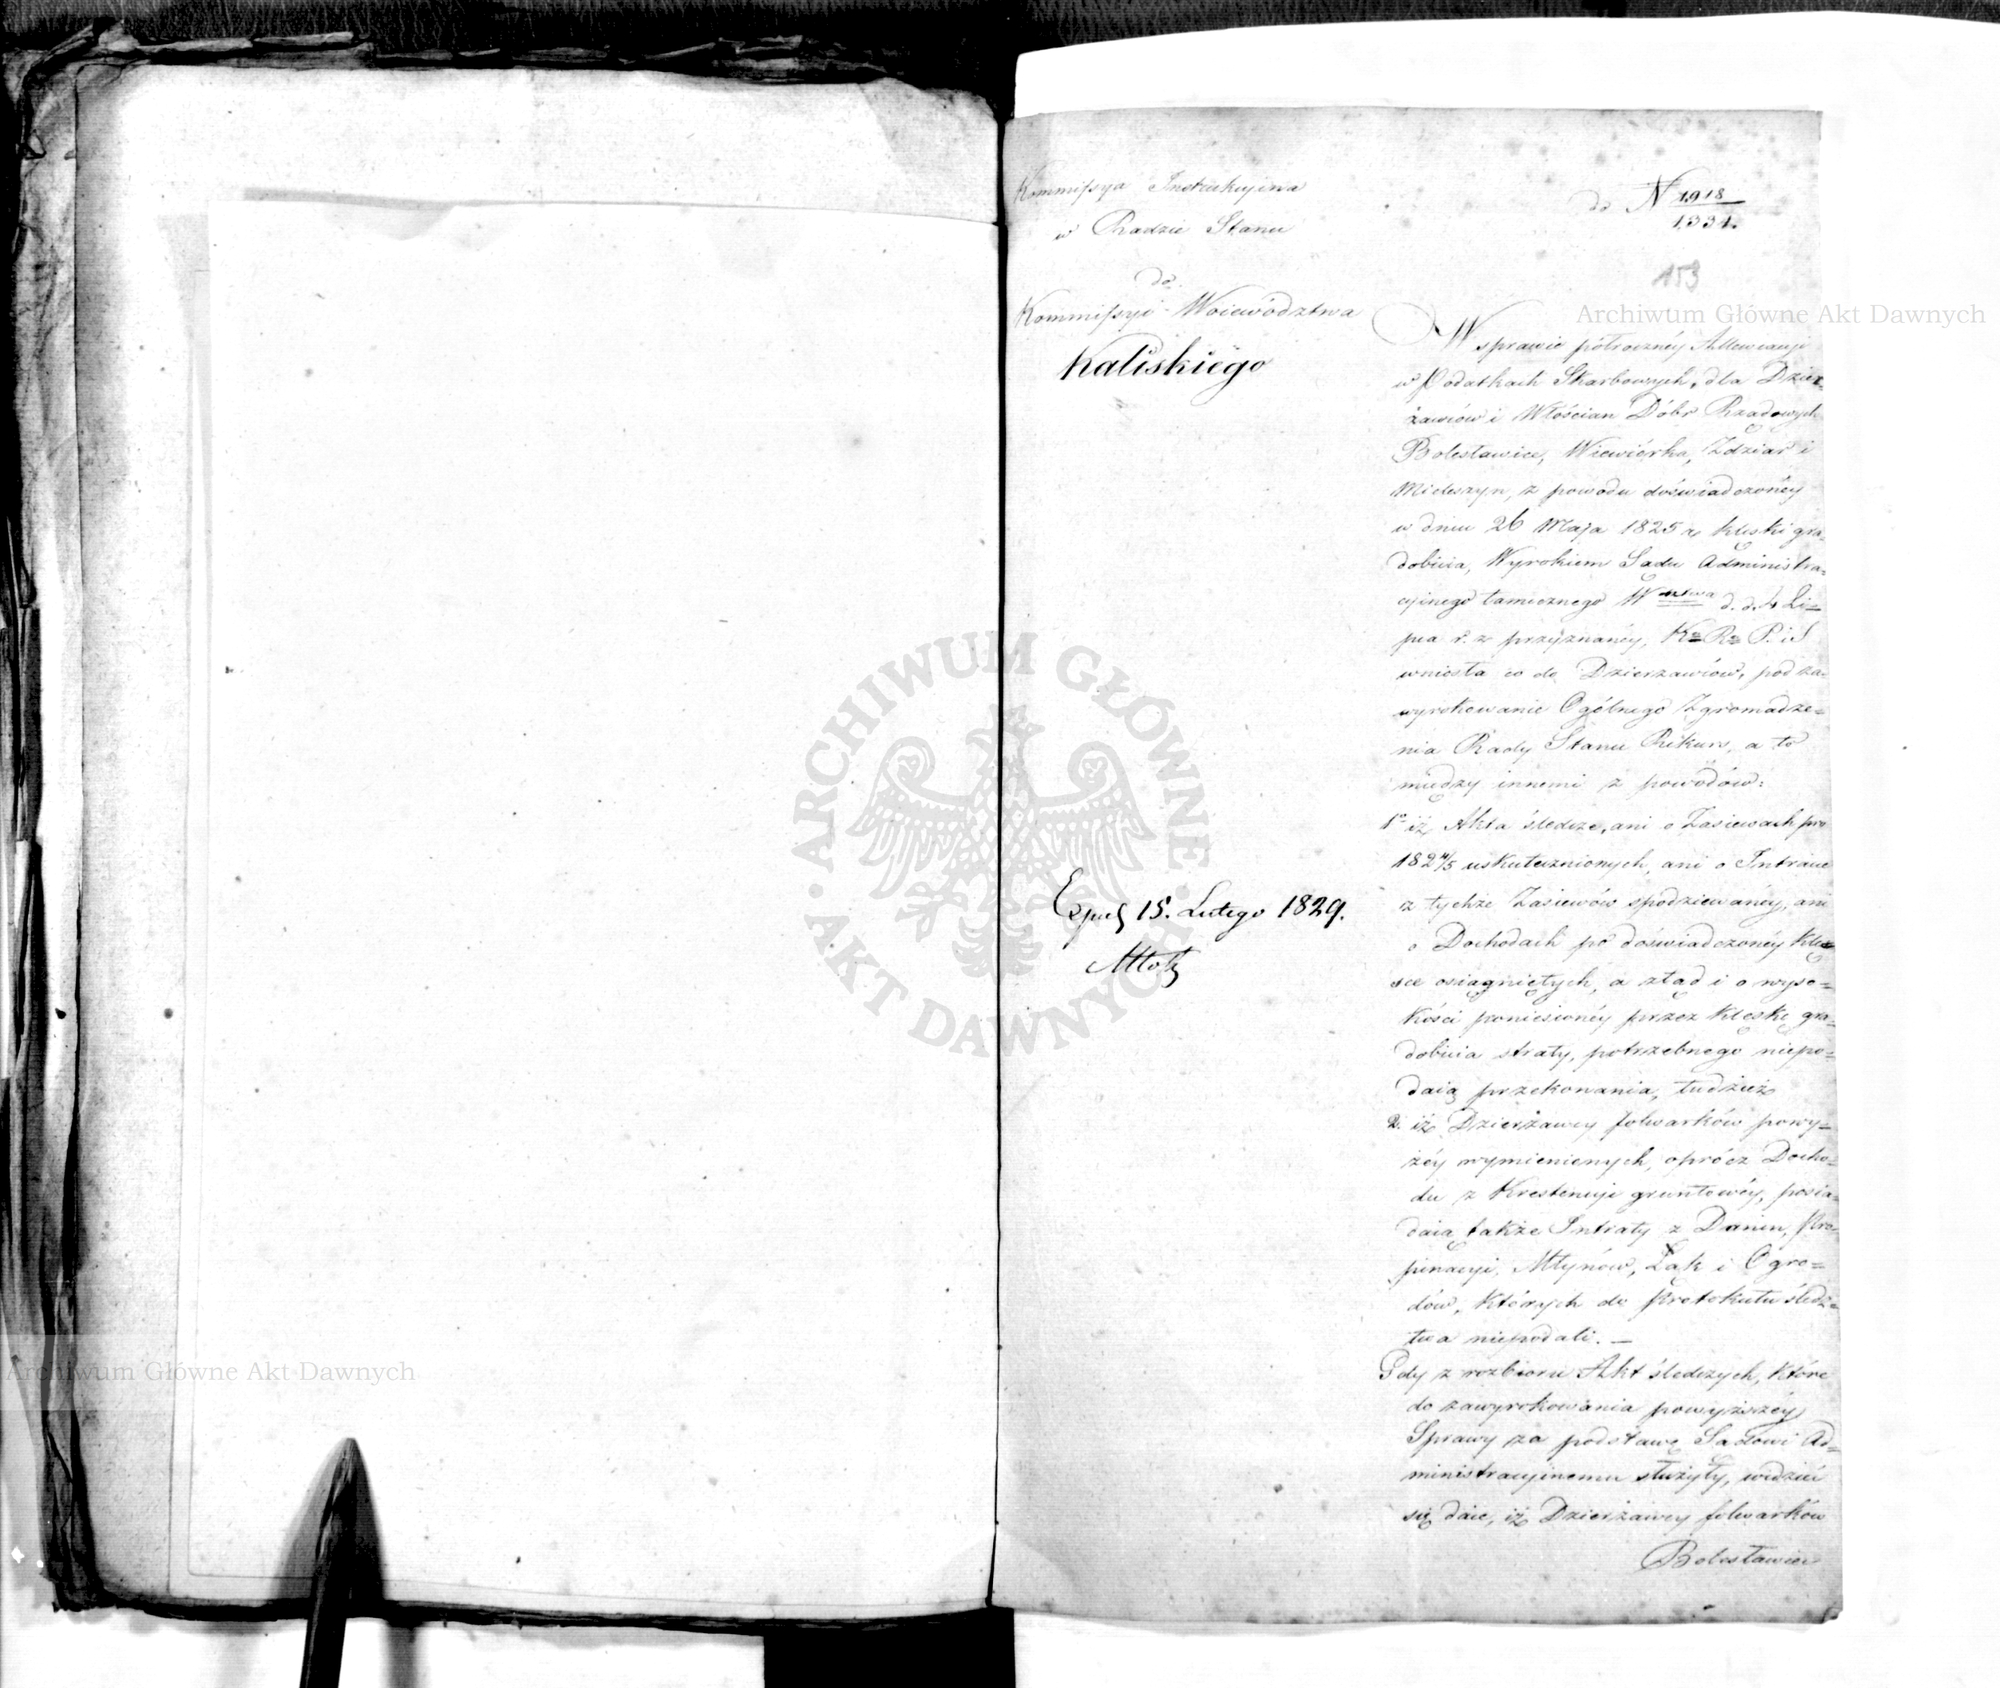 Kommissya Instrukcyina
w Radzie Stanu
do
Kommissyi Woiewództwa
Kaliskiego
Exped 15. Lutego 1829.
do N 1918/1331.
153
W sprawie półroczney Allewiacyi
w Podatkach Skarbowych, dla Dzier=
żawców i Włościan Dóbr Rządowych
Bolesławice, Wiewiórka, Zdziar i
Mieleszyn, z powodu doświadczoney
w dniu 26 Maja 1825 r. klęski gra=
dobicia, Wyrokiem Sądu Administra=
cyinego tamecznego W=ntwa d. d. 4 Li=
pca r. z. przyznaney, K. R. P. i S
wniosła co do Dzierzawców, pod za=
wyrokowanie Ogólnego Zgromadze=
nia Rady Stanu Rekurs, a to
między innemi z powodów:
1o iż Akta śledcze, ani o Zasiewach pro
1824/5 uskutecznionych, ani o Intracie
z tychże Zasiewów spodziewaney, ani
o Dochodach po doświadczoney Klę=
sce osiągniętych, a ztąd i o wyso=
kości poniesioney przez Klęskę gra=
dobicia straty, potrzebnego niepo=
daią przekonania, tudzież
2. iż Dzierżawcy folwarków powy=
żéy wymienionych, oprócz Docho=
du z Krestencyi gruntowéy, posia=
daią także Intraty z Danin, Pro=
pinacyi, Młynów, Łąk i Ogro=
dów, których do Protokułu śledz=
twa niepodali. —
Gdy z rozbioru Akt śledczych, które
do zawyrokowania powyższéy
Sprawy za podstawę Sądowi Ad=
ministracyinemu służyły, widzieć
się daie, iż Dzierżawcy folwarków
Bolesławice
Archiwum Główne Akt Dawnych
Archiwum Główne Akt Dawnych
ARCHIWUM GŁÓWNE
AKT DAWNYCH